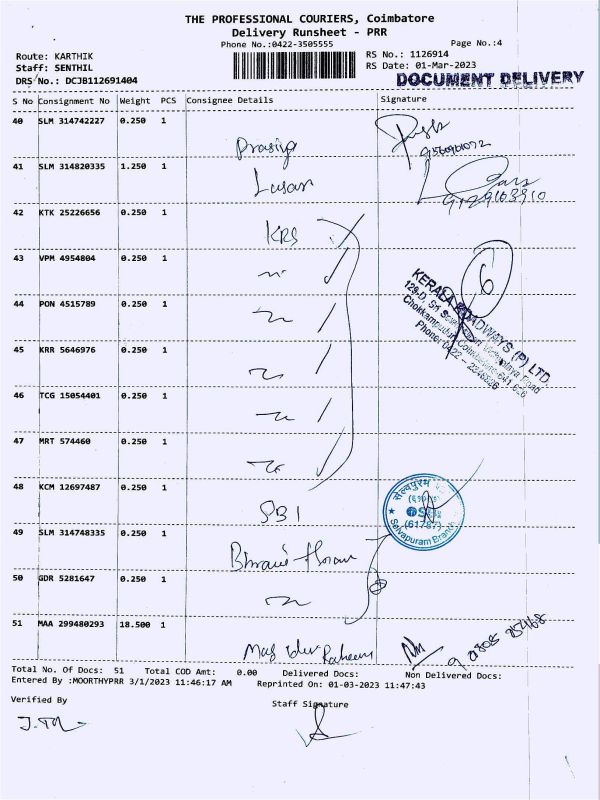 THE PROFESSIONAL COURIERS, Coimbatore
Delivery Runsheet - PRR
Phone No.:0422-3505555
Page No.:4
Route: KARTHIK
RS No.: 1126914
Staff: SENTHIL
RS Date: 01-Mar-2023
DRS No.: DCJB112691404
DOCUMENT DELIVERY
S No Consignment No Weight PCS Consignee Details Signature
40 SLM 314742227 0.250 1
41 SLM 314820335 1.250 1
42 KTK 25226656 0.250 1
KRS
43 VPM 4954804 0.250 1
6
44 PON 4515789 0.250 1
KERALA ROADWAYS (P) LTD.
Coimbatore-641
Phone: 0422 -
45 KRR 5646976 0.250 1
46 TCG 15054401 0.250 1
47 MRT 574460 0.250 1
48 KCM 12697487 0.250 1
SBI
(61787)
Selvapuram Branch
49 SLM 314748335 0.250 1
50 GDR 5281647 0.250 1
51 MAA 299480293 18.500 1
Total No. Of Docs: 51 Total COD Amt: 0.00 Delivered Docs: Non Delivered Docs:
Entered By :MOORTHYPRR 3/1/2023 11:46:17 AM Reprinted On: 01-03-2023 11:47:43
Verified By
Staff Signature